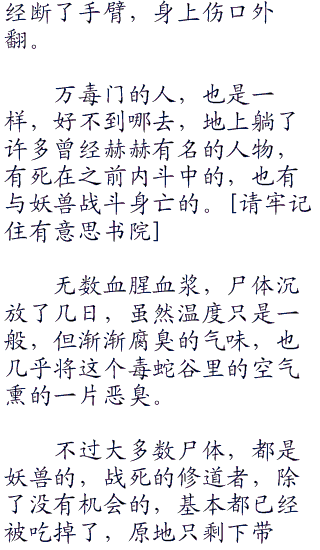 经断了手臂，身上伤口外
翻。
万毒门的人，也是一
样，好不到哪去，地上躺了
许多曾经赫赫有名的人物，
有死在之前内斗中的，也有
与妖兽战斗身亡的。[请牢记
住有意思书院]
无数血腥血浆，尸体沉
放了几日，虽然温度只是一
般，但渐渐腐臭的气味，也
几乎将这个毒蛇谷里的空气
熏的一片恶臭。
不过大多数尸体，都是
妖兽的，战死的修道者，除
了没有机会的，基本都已经
被吃掉了，原地只剩下带